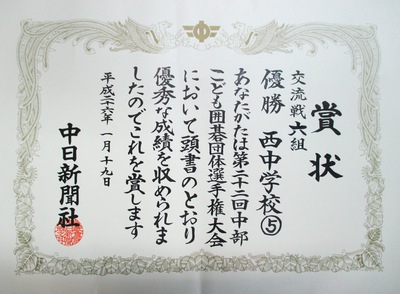 賞状
交流戦六組
優勝　西中学校⑤
あなたがたは第二十二回中部
こども囲碁団体選手権大会
において頭書のとおり
優秀な成績を収められま
したのでこれを賞します
平成二十六年一月十九日
中日新聞社